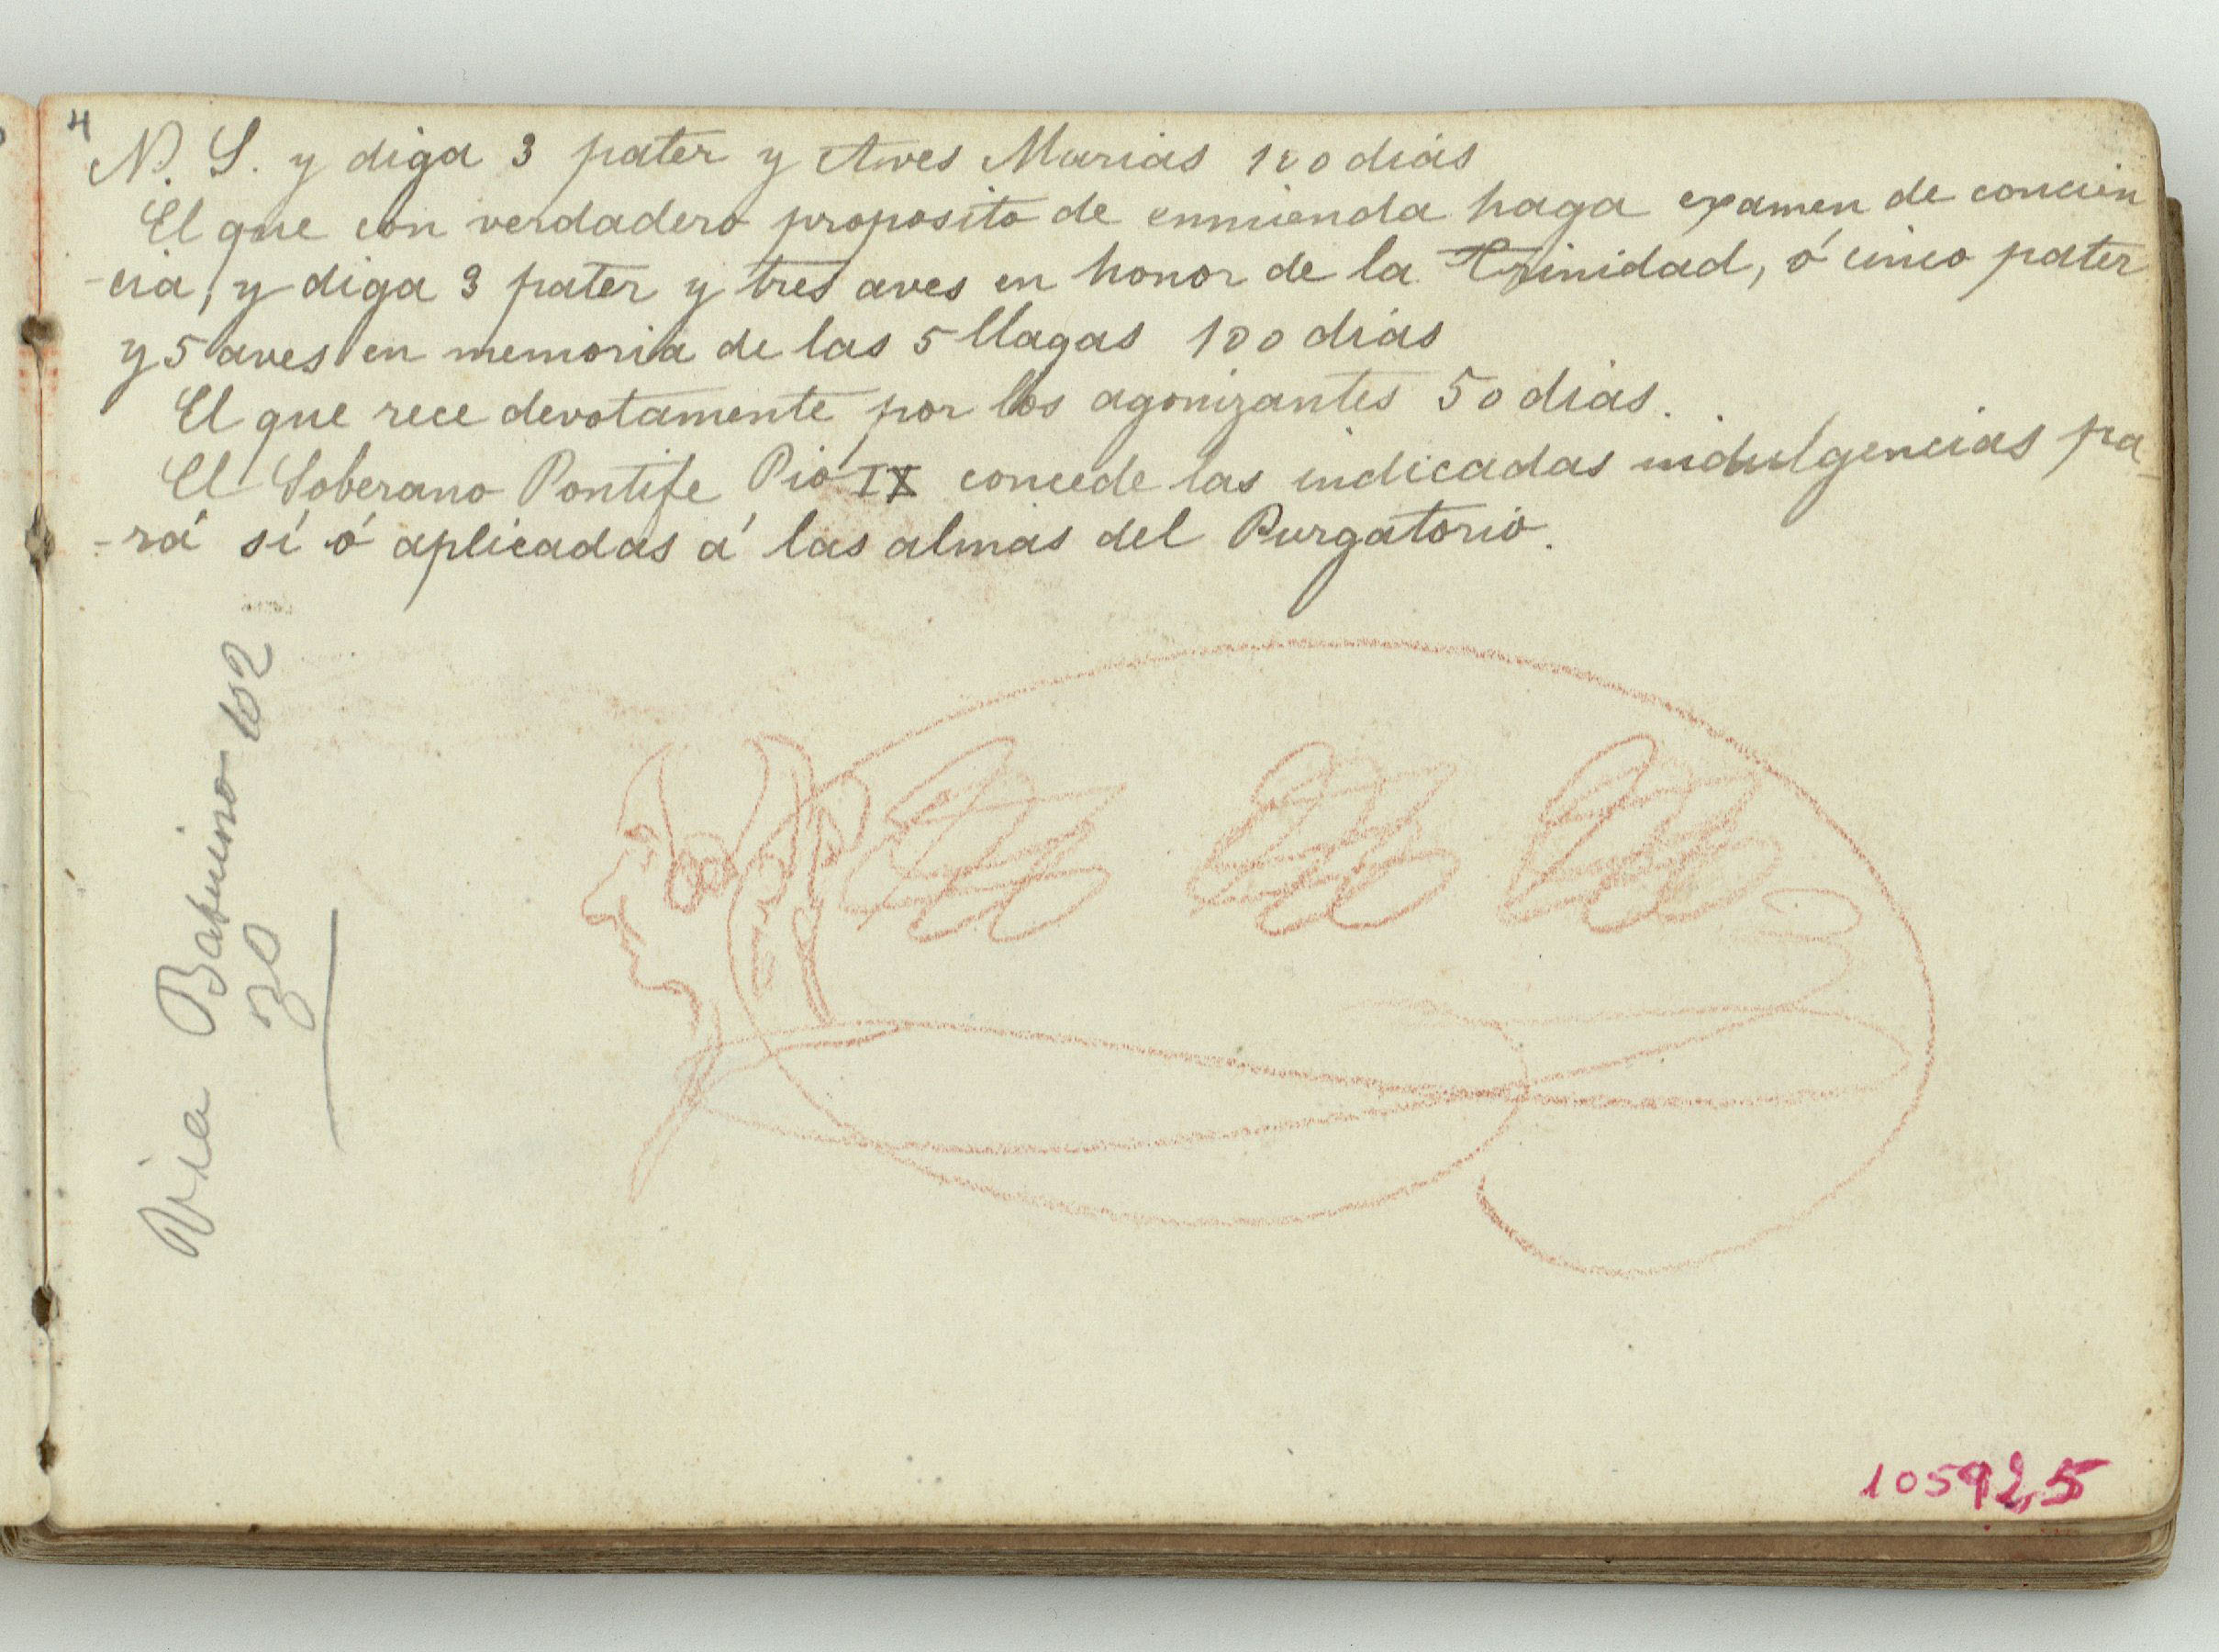 4
N. S. y diga 3 pater y Aves Marias 100 dias
El que con verdadero proposito de enmienda haga examen de concien
-cia, y diga 3 pater y tres aves en honor de la Trinidad, ó cinco pater
y 5 aves en memoria de las 5 llagas 100 dias
El que rece devotamente por los agonizantes 50 dias.
El Soberano Pontife Pio IX concede las indicadas indulgencias pa-
-rá sí ó aplicadas á las almas del Purgatorio.
Via Babuino 102
30
105925